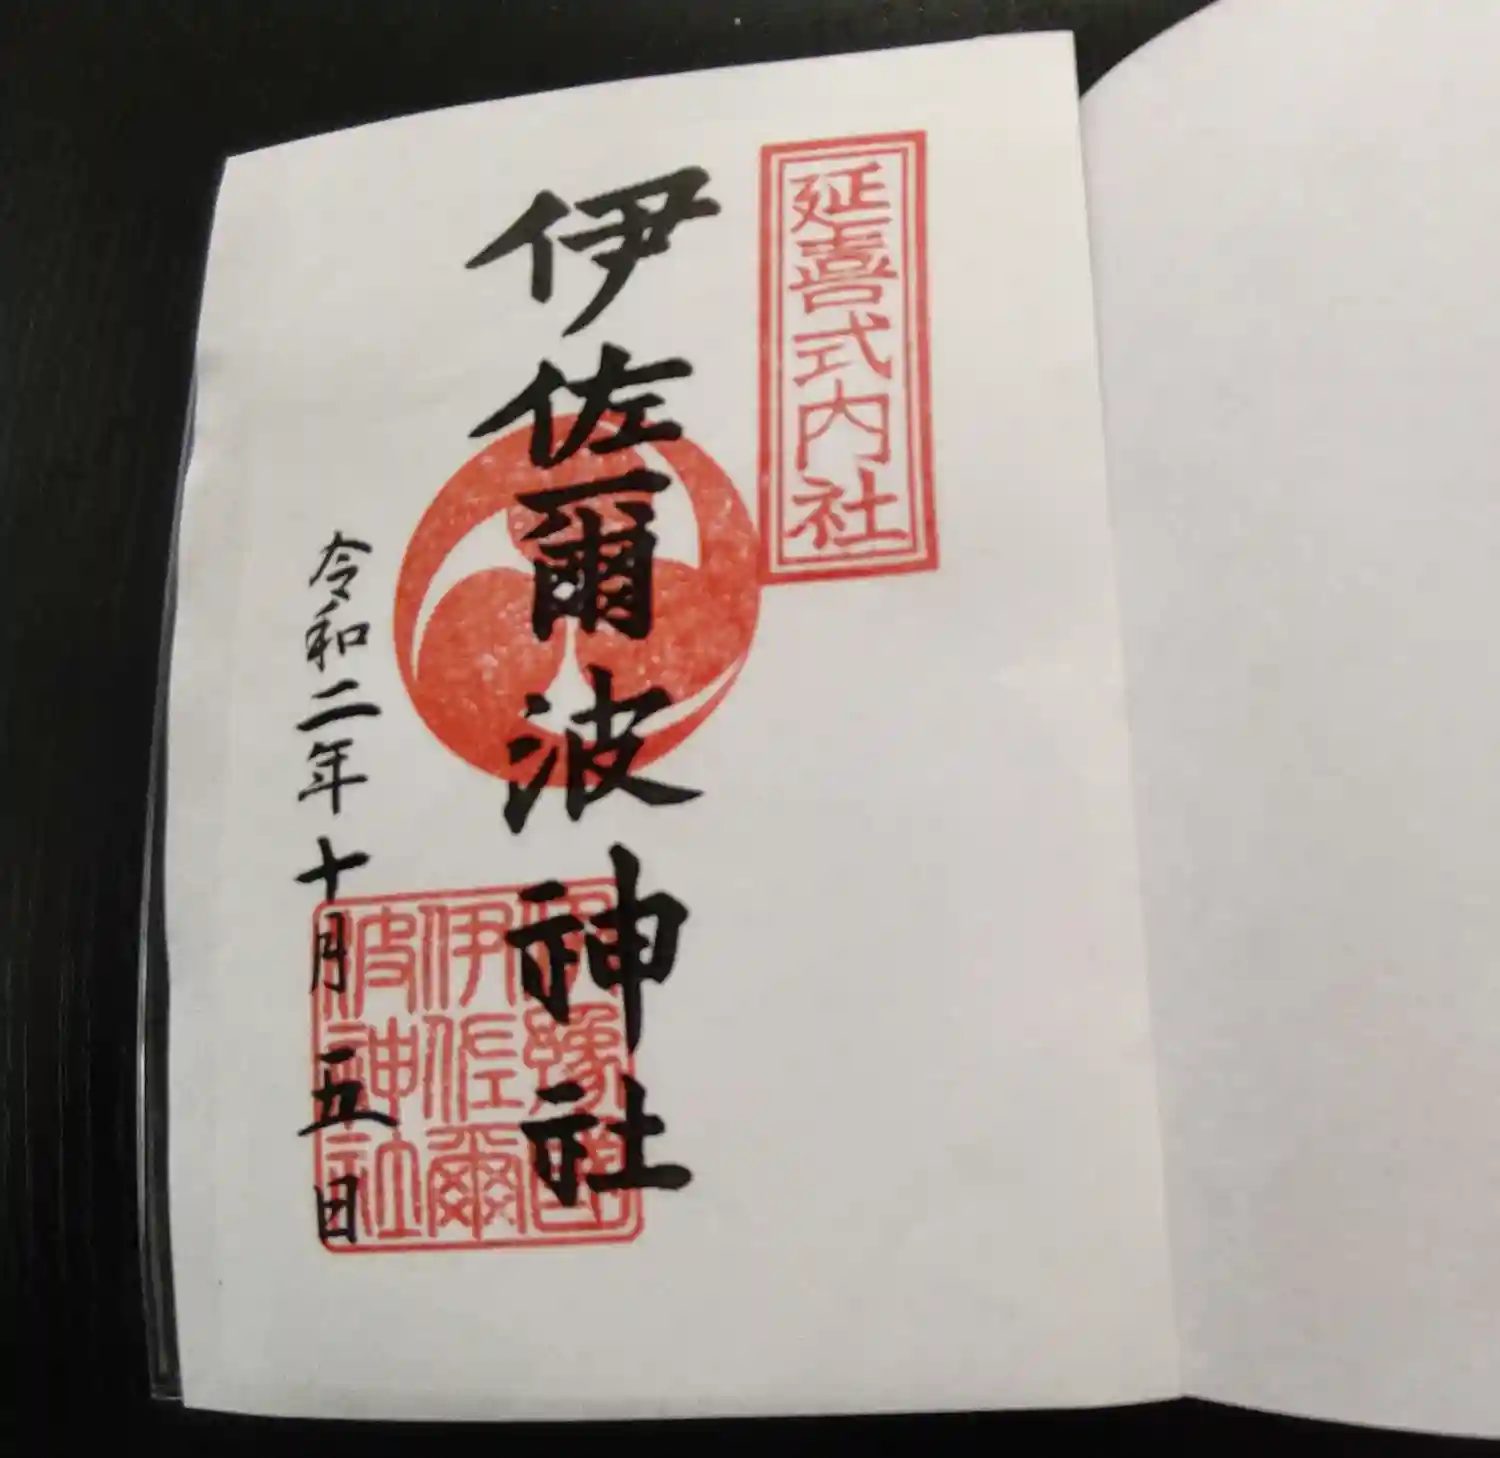 延喜式内社
伊佐爾波神社
伊豫國
伊佐爾
波神社
令和二年十月五日